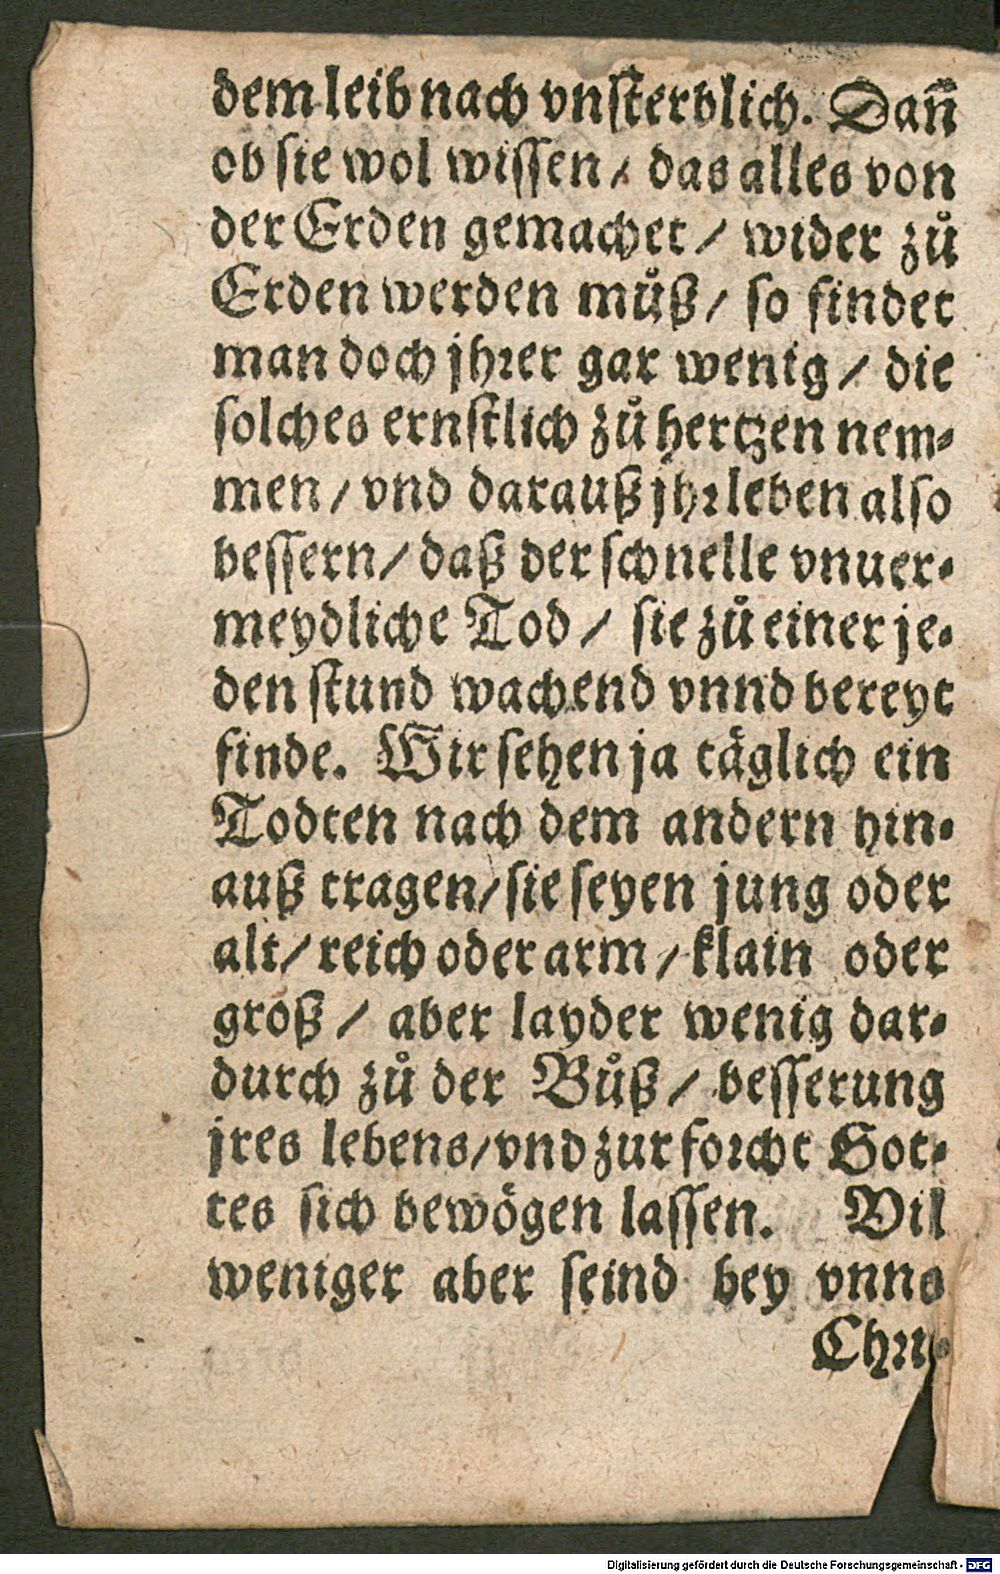 dem leib nach vnsterblich. Dañ
ob sie wol wissen / das alles von
der Erden gemachet / wider zů
Erden werden můß / so findet
man doch jhrer gar wenig / die
solches ernstlich zů hertzen nem-
men / vnd darauß jhr leben also
bessern / daß der schnelle vnuer-
meydliche Tod / sie zů einer je-
den stund wachend vnnd bereyt
finde. Wir sehen ja täglich ein
Todten nach dem andern hin-
auß tragen / sie seyen jung oder
alt / reich oder arm / klain oder
groß / aber layder wenig dar-
durch zů der Bůß / besserung
jres lebens / vnd zur forcht Got-
tes sich bewögen lassen. Vil
weniger aber seind bey vnns
Chri-
Digitalisierung gefördert durch die Deutsche Forschungsgemeinschaft - DFG